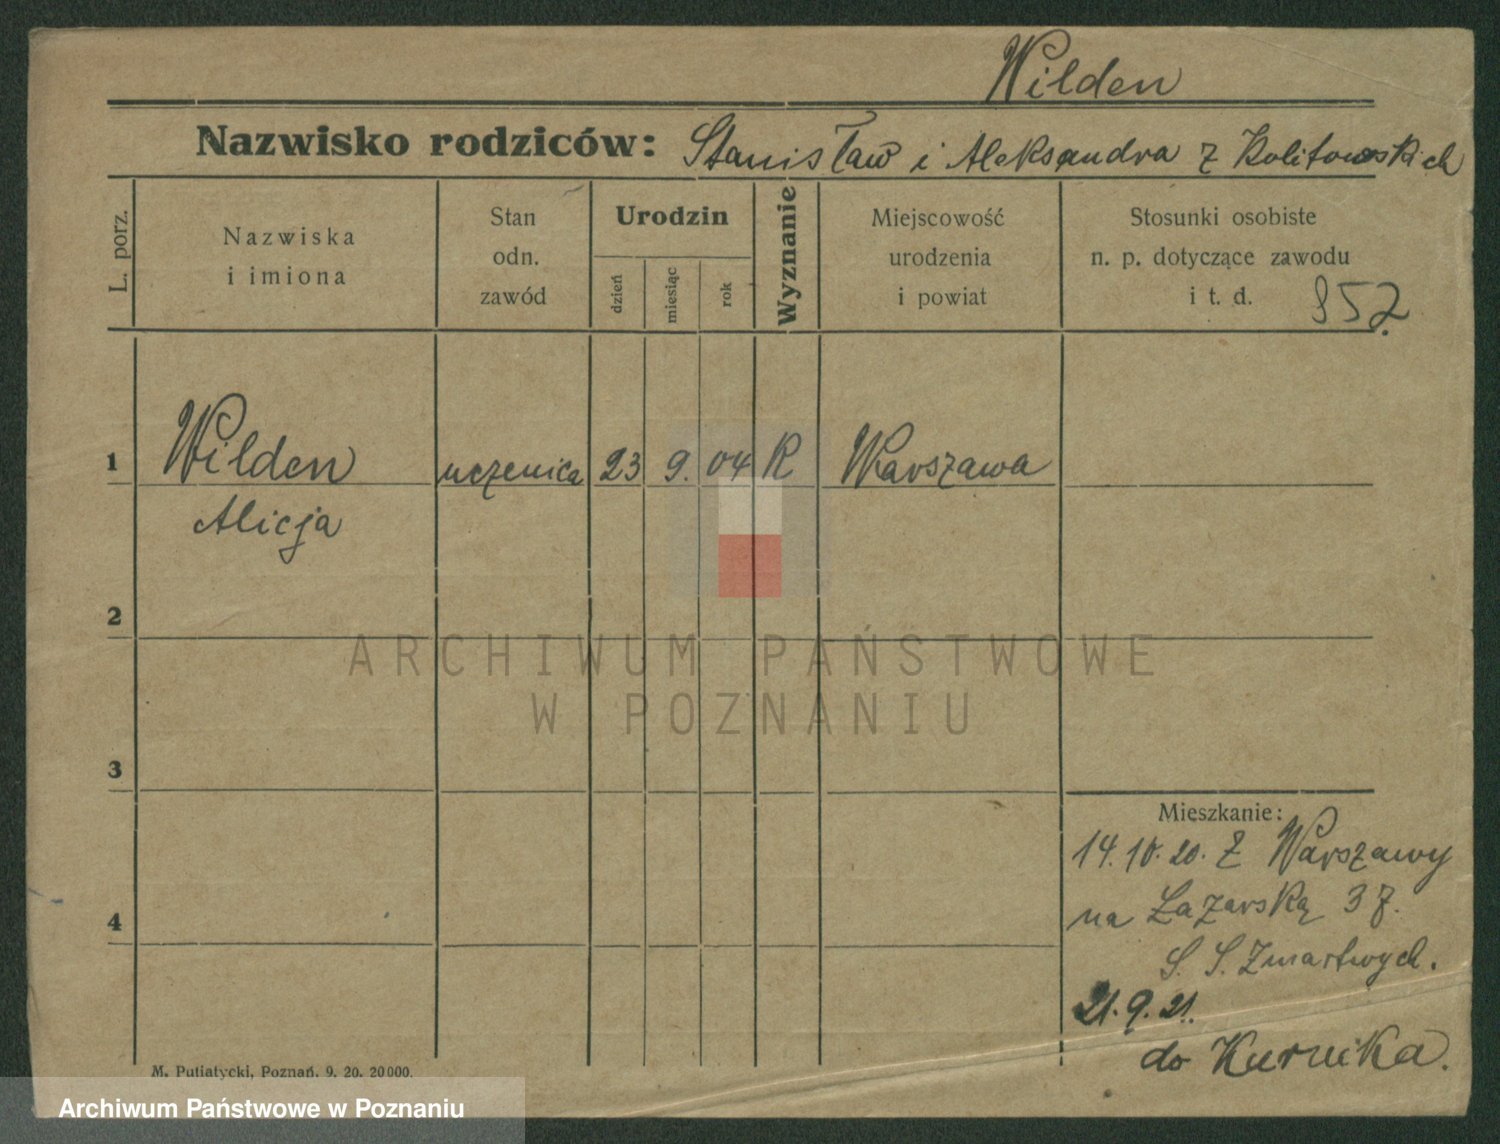 Wilden
Nazwisko rodziców: Stanisław i Aleksandra z Kolitowskich
L. porz.
Nazwiska
i imiona
Stan
odn.
zawód
Urodzin
dzień
miesiąc
rok
Wyznanie
Miejscowość
urodzenia
i powiat
Stosunki osobiste
n. p. dotyczące zawodu
i t. d.
352.
1 Wilden uczenica 23 9. 04 R Warszawa
Alicja
2
3
4
Mieszkanie:
14.10.20. Z Warszawy
na Łazarską 37.
S. S. Zmartwych.
21.9.21.
do Kurnika.
M. Putiatycki, Poznań. 9. 20. 20000.
ARCHIWUM PAŃSTWOWE
W POZNANIU
Archiwum Państwowe w Poznaniu